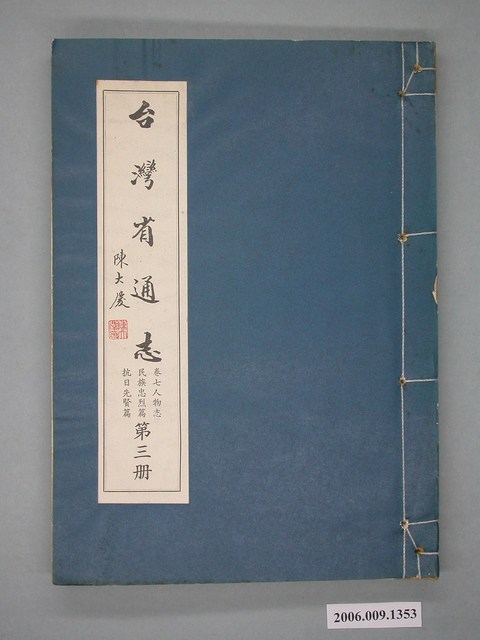 台灣省通志
陳大慶
卷七人物志
民族忠烈篇
抗日先賢篇
第三冊
2006.009.1353